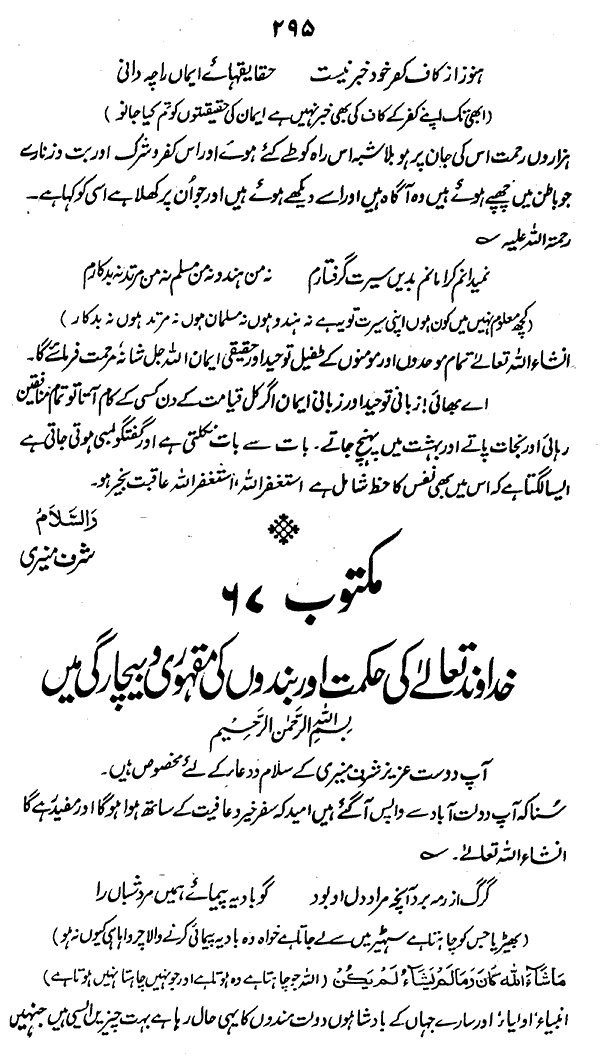 ۲۹۵
ہنوز از کاف کفر خود خبر نیست حقایقہائے ایماں را چہ دانی
(ابھی تک اپنے کفر کے کاف کی بھی خبر نہیں ہے ایمان کی حقیقتوں کو تم کیا جانو)
ہزاروں رحمت اس کی جان پر ہو بلا شبہ اس راہ کو طے کئے ہوئے اور اس کفر و شرک اور بت و زنار سے
جو باطن میں چھپے ہوئے ہیں وہ آگاہ ہیں اور اسے دیکھے ہوئے ہیں اور جو اُن پر کھلا ہے اسی کو کہا ہے۔
رحمۃ اللہ علیہ ؎
نمیدانم کرا مانم بدیں سیرت گرفتارم نہ من ہندو نہ من مسلم نہ من مرتد نہ بدکارم
(کچھ معلوم نہیں میں کون ہوں اپنی سیرت تو یہ ہے نہ ہندو ہوں نہ مسلمان ہوں نہ مرتد ہوں نہ بدکار)
انشاء اللہ تعالےٰ تمام موحدوں اور مؤمنوں کے طفیل توحید اور حقیقی ایمان اللہ جل شانہٗ مرحمت فرمائے گا۔
اے بھائی! زبانی توحید اور زبانی ایمان اگر کل قیامت کے دن کسی کے کام آتا تو تمام منافقین
رہائی اور نجات پاتے اور بہشت میں پہنچ جاتے۔ بات سے بات نکلتی ہے اور گفتگو لمبی ہوتی جاتی ہے
ایسا لگتا ہے کہ اس میں بھی نفس کا حظ شامل ہے استغفر اللہ، استغفر اللہ عاقبت بخیر ہو۔
والسلام
شرف منیری
مکتوب ۶۷
خداوند تعالےٰ کی حکمت اور بندوں کی مقہوری و بیچارگی میں
بِسْمِ اللہِ الرَّحْمٰنِ الرَّحِیْمِ
آپ دوست عزیز شرف منیری کے سلام و دعاء کے لئے مخصوص ہیں۔
سُنا کہ آپ دولت آباد سے واپس آگئے ہیں امید کہ سفر خیر و عافیت کے ساتھ ہوا ہوگا اور مفید رہے گا
انشاء اللہ تعالےٰ۔ ؎
گرگ از رمہ برد آنچہ مراد دل او بود گو بادیہ پیمائے ہمیں مرد شباں را
(بھیڑیا جس کو چاہتا ہے بھیڑ میں سے لے جاتا ہے خواہ وہ بادیہ پیمائی کرنے والا چرواہا ہی کیوں نہ ہو)
مَاشَاءَ اللہُ کَانَ وَمَا لَمْ یَشَاءُ لَمْ یَکُنْ (اللہ جو چاہتا ہے وہ ہوتا ہے اور جو نہیں چاہتا نہیں ہوتا ہے)
انبیاء، اولیاء، اور سارے جہاں کے بادشاہوں دولت مندوں کا یہی حال رہا ہے بہت چیزیں ایسی ہیں جنہیں